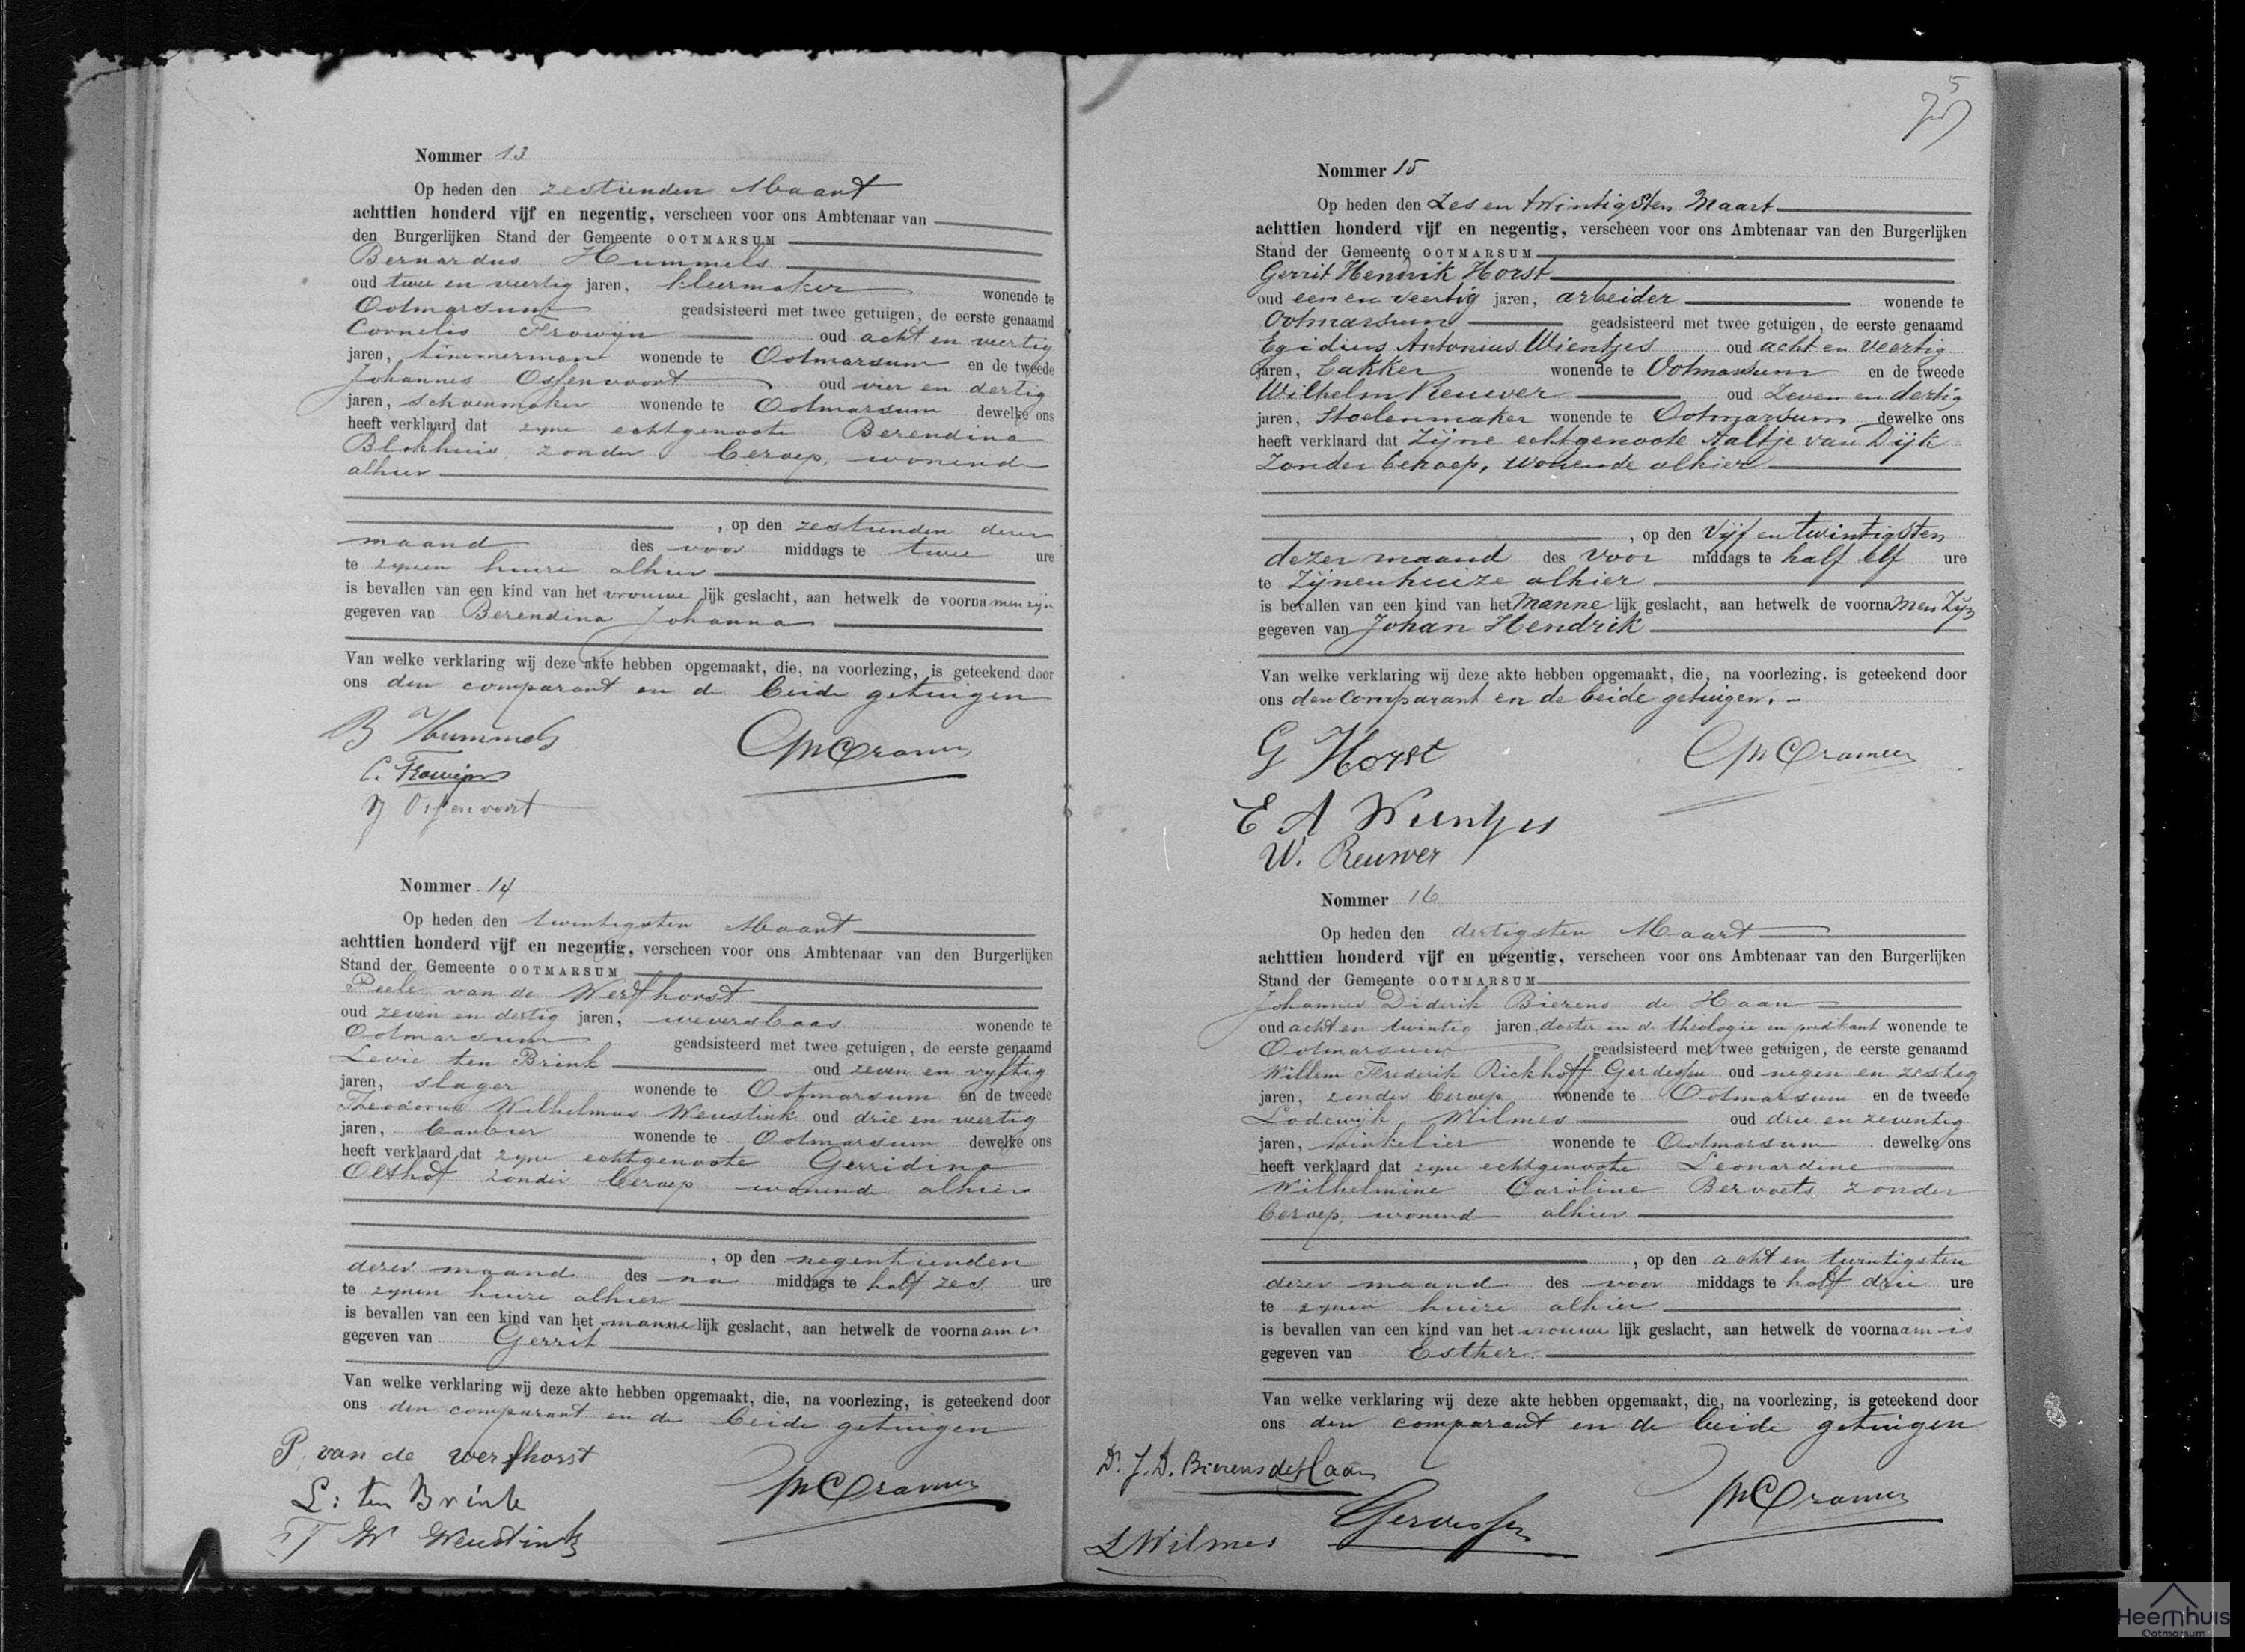 Nommer 13
Op heden den zestienden Maart
achttien honderd vijf en negentig, verscheen voor ons Ambtenaar van
den Burgerlijken Stand der Gemeente OOTMARSUM
Bernardus Hummels
oud twee en veertig jaren, kleermaker wonende te
Ootmarsum geadsisteerd met twee getuigen, de eerste genaamd
Cornelis Frowijn oud acht en veertig
jaren, timmerman wonende te Ootmarsum en de tweede
Johannes Ossenvoort oud vier en dertig
jaren, schoenmaker wonende te Ootmarsum dewelke ons
heeft verklaard dat zijne echtgenoote Berendina
Blokhuis, zonder beroep, wonende
alhier
, op den zestienden dezer
maand des voor middags te twee ure
te zijnen huize alhier
is bevallen van een kind van het vrouwe lijk geslacht, aan hetwelk de voorna men zijn
gegeven van Berendina Johanna
Van welke verklaring wij deze akte hebben opgemaakt, die, na voorlezing, is geteekend door
ons den comparant en de beide getuigen
B Hummels
CMCramer
C. Frowijn
J Ossenvoort
Nommer 14
Op heden den twintigsten Maart
achttien honderd vijf en negentig, verscheen voor ons Ambtenaar van den Burgerlijken
Stand der Gemeente OOTMARSUM
Peele van de Werfhorst
oud zeven en dertig jaren, weversbaas wonende te
Ootmarsum geadsisteerd met twee getuigen, de eerste genaamd
Levie ten Brink oud zeven en vyftig
jaren, slager wonende te Ootmarsum en de tweede
Theodorus Wilhelmus Weustink oud drie en veertig
jaren, barbier wonende te Ootmarsum dewelke ons
heeft verklaard dat zijne echtgenoote Gerridina
Olthof zonder beroep wonend alhier
, op den negentienden
dezer maand des na middags te half zes ure
te zijnen huize alhier
is bevallen van een kind van het manne lijk geslacht, aan hetwelk de voorna am is
gegeven van Gerrit
Van welke verklaring wij deze akte hebben opgemaakt, die, na voorlezing, is geteekend door
ons den comparant en de beide getuigen
P. van de Werfhorst
CMCramer
L: ten Brink
T W Weustink
5
Nommer 15
Op heden den Zes en twintigsten Maart
achttien honderd vijf en negentig, verscheen voor ons Ambtenaar van den Burgerlijken
Stand der Gemeente OOTMARSUM
Gerrit Hendrik Horst
oud een en veertig jaren, arbeider wonende te
Ootmarsum geadsisteerd met twee getuigen, de eerste genaamd
Egidius Antonius Wientjes oud acht en veertig
jaren, bakker wonende te Ootmarsum en de tweede
Wilhelm Reuwer oud Zeven en dertig
jaren, Stoelenmaker wonende te Ootmarsum dewelke ons
heeft verklaard dat Zijne echtgenoote Aaltje van Dijk
Zonder beroep, wonende alhier
, op den Vijf en twintigsten
dezer maand des voor middags te half elf ure
te Zijnen huize alhier
is bevallen van een kind van het manne lijk geslacht, aan hetwelk de voorna men Zijn
gegeven van Johan Hendrik
Van welke verklaring wij deze akte hebben opgemaakt, die, na voorlezing, is geteekend door
ons den Comparant en de beide getuigen. -
G Horst
CMCramer
E A Wientjes
W. Reuwer
Nommer 16
Op heden den dertigsten Maart
achttien honderd vijf en negentig, verscheen voor ons Ambtenaar van den Burgerlijken
Stand der Gemeente OOTMARSUM
Johannes Diderik Bierens de Haan
oud acht en twintig jaren, doctor in de theologie en predikant wonende te
Ootmarsum geadsisteerd met twee getuigen, de eerste genaamd
Willem Frederik Rickhoff Gerdessen oud negen en zestig
jaren, zonder beroep wonende te Ootmarsum en de tweede
Lodewijk Wilmes oud drie en zeventig
jaren, winkelier wonende te Ootmarsum dewelke ons
heeft verklaard dat zijne echtgenoote Leonardine
Wilhelmine Caroline Bervoets zonder
beroep, wonend alhier
, op den acht en twintigsten
dezer maand des voor middags te half drie ure
te zijnen huize alhier
is bevallen van een kind van het vrouwe lijk geslacht, aan hetwelk de voorna am is
gegeven van Esther.
Van welke verklaring wij deze akte hebben opgemaakt, die, na voorlezing, is geteekend door
ons den comparant en de beide getuigen
Dr. J. D. Bierens de Haan
CMCramer
Gerdessen
L Wilmes
Heemhuis
Ootmarsum